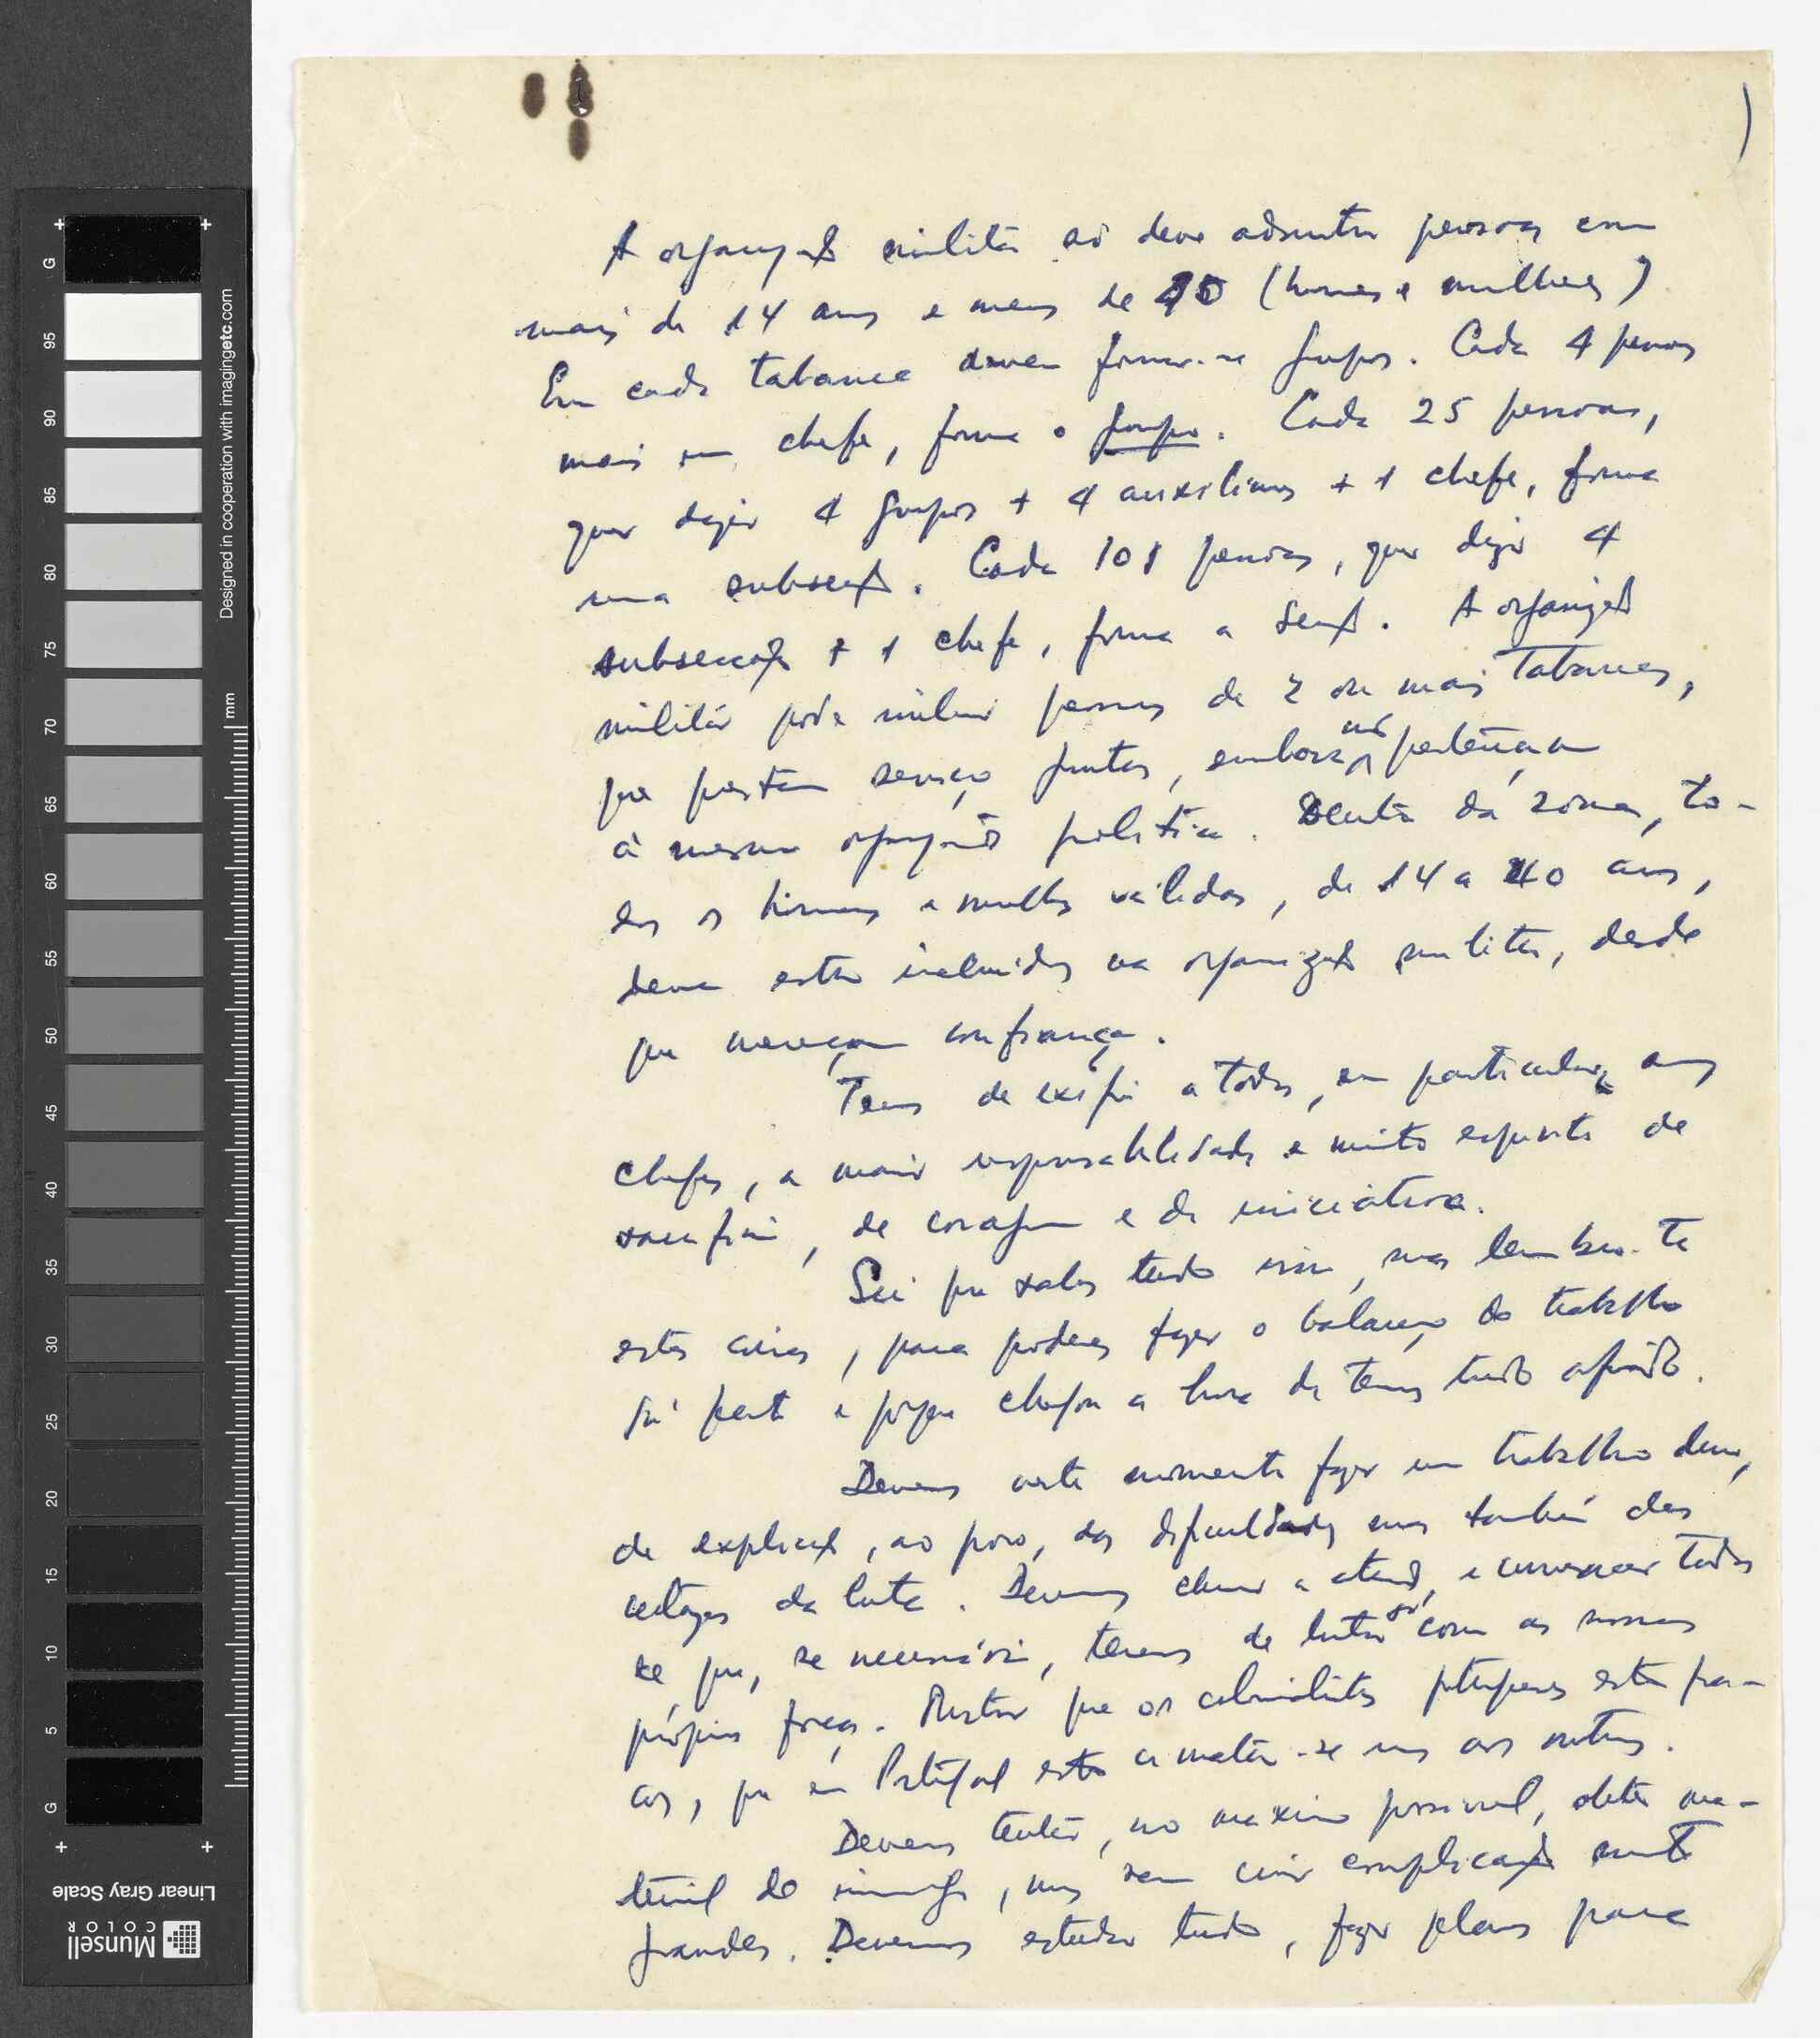 A organização militar só deve admitir pessoas com
mais de 14 anos e menos de 40 (homens e mulheres)
Em cada tabanca devem formar-se grupos. Cada 4 pessoas
mais um chefe, forma o grupo. Cada 25 pessoas,
quer dizer 4 grupos + 4 auxiliares + 1 chefe, forma
uma subsecção. Cada 101 pessoas, quer dizer 4
subsecções + 1 chefe, forma a Secção. A organização
militar pode incluir pessoas de 2 ou mais Tabancas,
que prestam serviço juntas, embora não pertençam
à mesma organização política. Dentro da zona, to-
dos os homens e mulheres válidos, de 14 a 40 anos,
devem estar incluidos na organização militar, desde
que mereçam confiança.
Temos de exigir a todos, em particular aos
chefes, a maior responsabilidade e muito espirito de
sacrifício, de coragem e de iniciativa.
Sei que sabes tudo isso, mas lembro-te
estas coisas, para poderes fazer o balanço do trabalho
já feito e porque chegou a hora de termos tudo afinado.
Devemos neste momento fazer um trabalho
de explicação, ao povo, das dificuldades mas também das
vantagens da luta. Devemos chamar a atenção, e convencer todos
de que, se necessário, temos de lutar só com as nossas
próprias forças. Mostrar que os colonialistas portugueses estão fra-
cos, que em Portugal estão a matar-se uns aos outros.
Devemos tentar, no maximo possivel, obter ma-
terial do inimigo, mas sem criar complicações muito
grandes. Devemos estudar tudo, fazer planos para
Designed in cooperation with imagingetc.com
mm
G 95 90 85 80 75 70 65 60 55 50 45 40 35 30 25 20 15 10 5 G
Linear Gray Scale
Munsell
COLOR